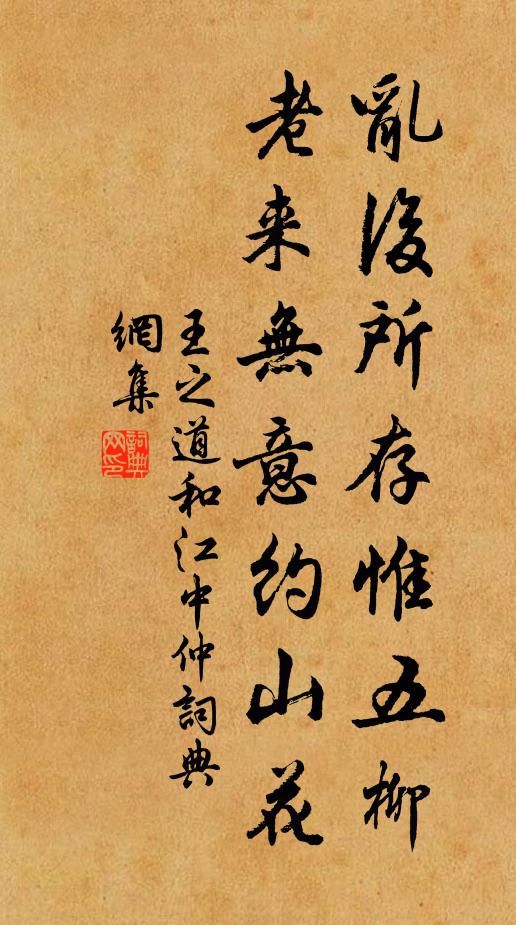 亂後所存惟五柳
老来無意約山花
王之道和江中仲詞典
網集
詞典網印